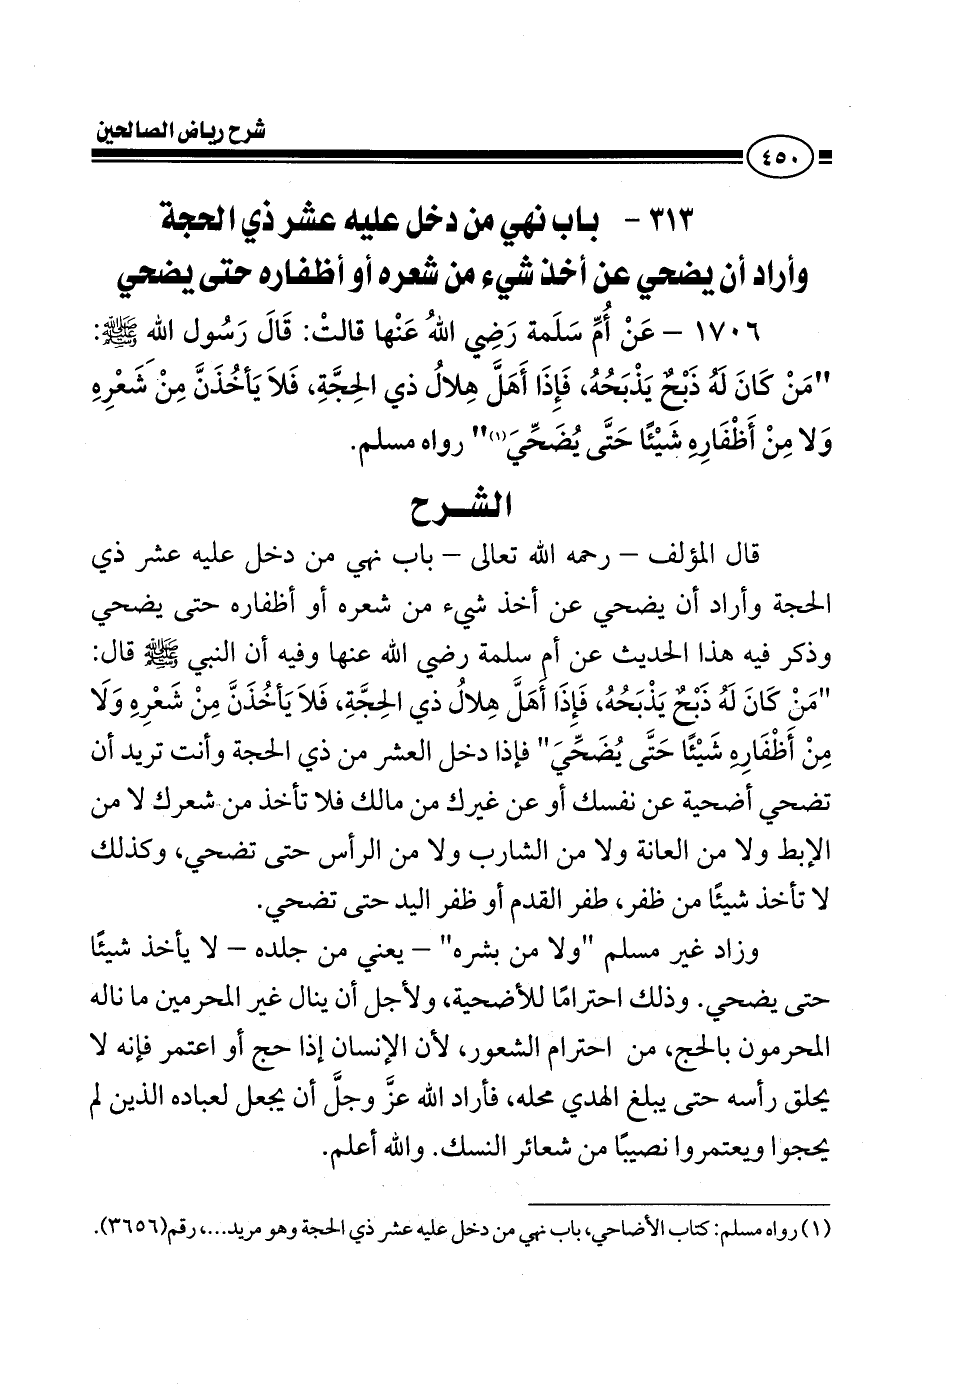 شرح رياض الصالحين
٤٥٠
٣١٣ - باب نهي من دخل عليه عشر ذي الحجة
وأراد أن يضحي عن أخذ شيء من شعره أو أظفاره حتى يضحي
١٧٠٦ – عَنْ أُمِّ سَلَمة رَضِي اللهُ عَنْها قالتْ: قَالَ رَسُول الله ﷺ:
"مَنْ كَانَ لَهُ ذَبْحٌ يَذْبَحُهُ، فَإِذَا أَهَلَّ هِلالُ ذي الحِجَّةِ، فَلاَ يَأخُذَنَّ مِنْ شَعْرِهِ
وَلا مِنْ أَظْفَارِهِ شَيْئًا حَتَّى يُضَحِّيَ(١)" رواه مسلم.
الشـــرح
قال المؤلف – رحمه الله تعالى – باب نهي من دخل عليه عشر ذي
الحجة وأراد أن يضحي عن أخذ شيء من شعره أو أظفاره حتى يضحي
وذكر فيه هذا الحديث عن أم سلمة رضي الله عنها وفيه أن النبي ﷺ قال:
"مَنْ كَانَ لَهُ ذَبْحٌ يَذْبَحُهُ، فَإِذَا أَهَلَّ هِلالُ ذي الحِجَّةِ، فَلاَ يَأخُذَنَّ مِنْ شَعْرِهِ وَلَا
مِنْ أَظْفَارِهِ شَيْئًا حَتَّى يُضَحِّيَ" فإذا دخل العشر من ذي الحجة وأنت تريد أن
تضحي أضحية عن نفسك أو عن غيرك من مالك فلا تأخذ من شعرك لا من
الإبط ولا من العانة ولا من الشارب ولا من الرأس حتى تضحي، وكذلك
لا تأخذ شيئًا من ظفر، طفر القدم أو ظفر اليد حتى تضحي.
وزاد غير مسلم "ولا من بشره" – يعني من جلده – لا يأخذ شيئًا
حتى يضحي. وذلك احترامًا للأضحية، ولأجل أن ينال غير المحرمين ما ناله
المحرمون بالحج، من احترام الشعور، لأن الإنسان إذا حج أو اعتمر فإنه لا
يحلق رأسه حتى يبلغ الهدي محله، فأراد الله عزَّ وجلَّ أن يجعل لعباده الذين لم
يحجوا ويعتمروا نصيبًا من شعائر النسك. والله أعلم.
(١) رواه مسلم: كتاب الأضاحي، باب نهي من دخل عليه عشر ذي الحجة وهو مريد...، رقم(٣٦٥٦).